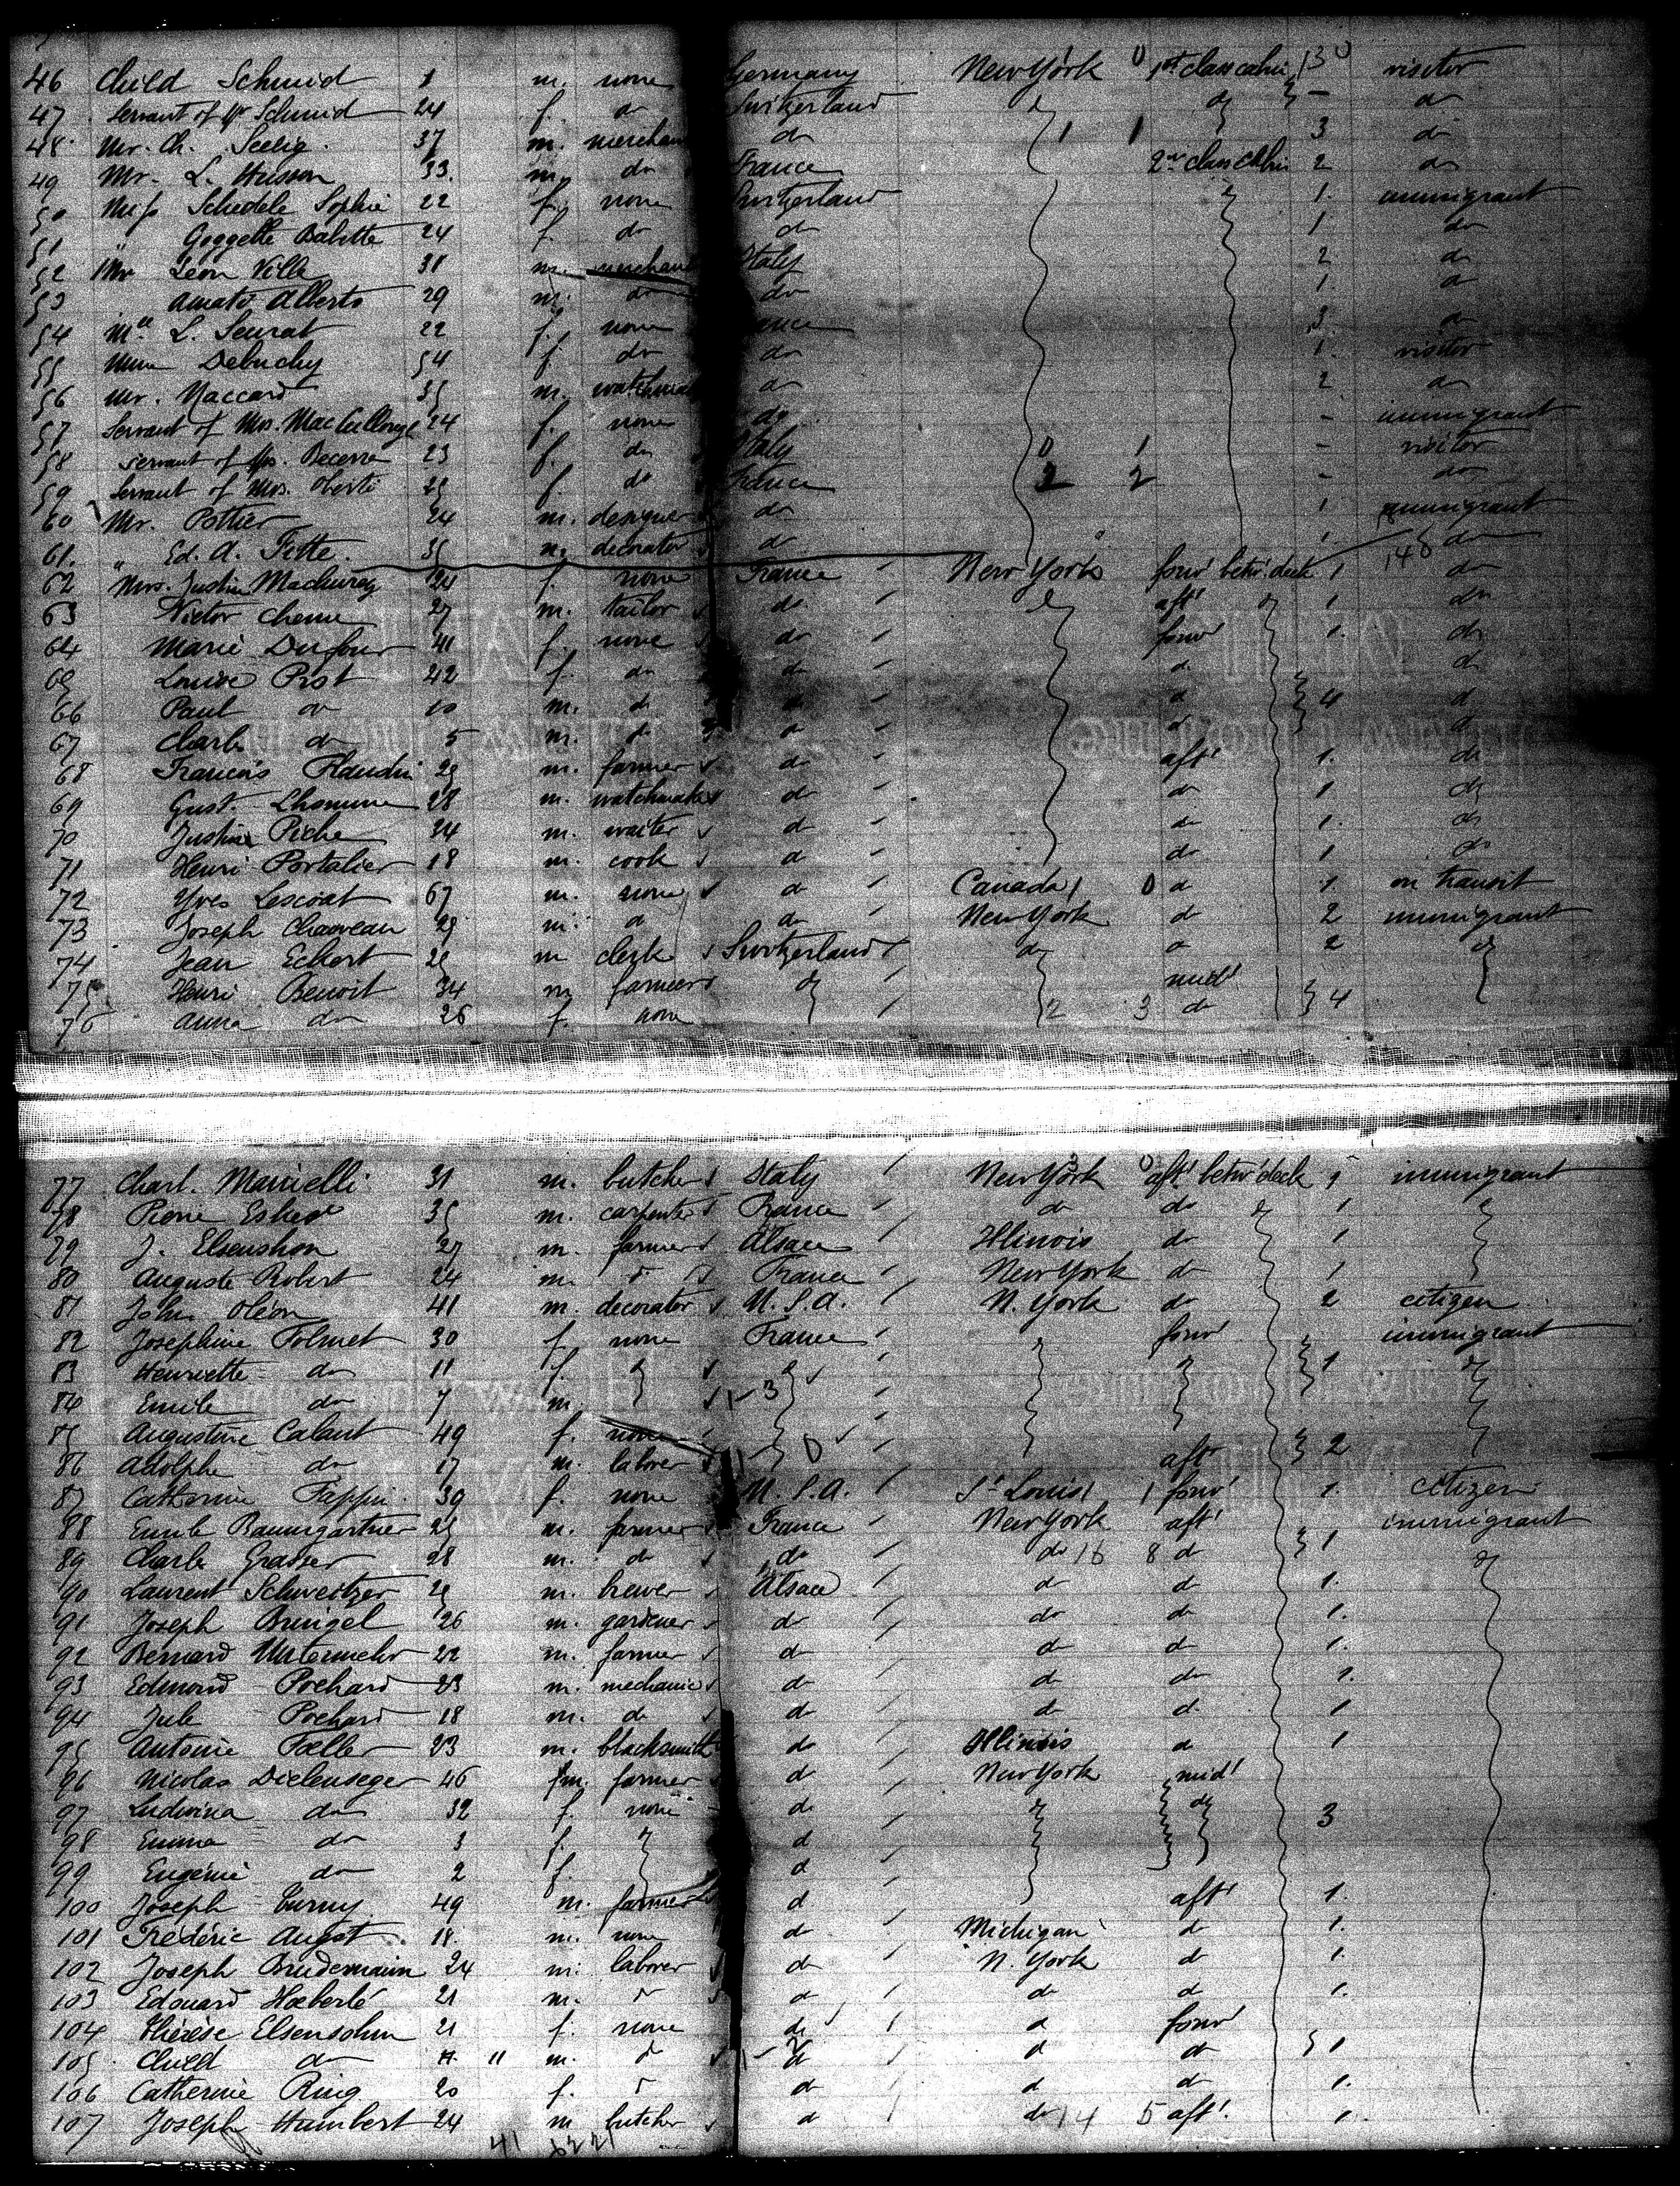 46 Child Schmid 1 m. none Germany New York 0 1st class cabin 3 0 visitor
47 Servant of Mr Schmid 24 f. do Switzerland do do - do
48 Mr. Ch. Seelig. 37 m. merchan do 1 1 3 do
49 Mr. L. Husson 33. m. do France 2nd class cabin 2 do
50 Miss Schedele Sophie 22 f. none Switzerland 1. immigrant
51 " Goggette Babette 24 f. do do 1 do
52 Mr Léon Ville 31 m. merchand Italy 2 do
53 Amato Alberto 29 m. do do 1. do
54 Mlle L. Seurat 22 f. none ance 3 do
55 Mme Debuchy 54 f. do do 1. visitor
56 Mr. Naccard 35 m. watchma do 2 do
57 Servant of Mrs. Mac 24 f. none do - immigrant
58 servant of Mrs. Becerra 23 f. do Italy 0 1 - visitor
59 Servant of Mrs. Oberti 25 f. do France 2 2 - do
60 Mr. Pottier 24 m. designer do 1 immigrant
61. " Ed. A. Fette. 35 m. decorator do 1. 148 do
62 Mrs. Justin 24 f. none France New York forwd betw. deck 1 do
63 Victor Chenu 27 m. tailor do do aft' do 1 do
64 Marie Dufour 41 f. none do forwd 1. do
65 Louise Prot 42 f. do do d d
66 Paul do 10 m. d d d 4 d
67 Charle do 5 m. d d d d
68 Francois Flaudin 25 m. farmer do aft' 1. do
69 Gust. Lhomme 28 m. watchmaker do do 1 do
70 Justin Piche 34 m. waiter d do 1. do
71 Henri Portalier 18 m. cook d do 1 do
72 Yves Lescoat 67 m. none d Canada 1 0 d 1. on transit
73 Joseph Chauveau 29 m. d do New York d 2 immigrant
74 Jean Eckert 25 m clerk Switzerland do d 2 do
75 Henri Benoit 34 m farmer do mid'
76 Anna do 26 f. none 2 3 do 4
77 Charl. Marcielli 31 m. butcher Italy New York 0 aft' betw' deck 1 immigrant
78 Pierre 35 m. carpenter France do do do 1
79 J. Elsensohn 27 m. farmer Alsace Illinois do 1
80 Auguste Robert 24 m. d France New York do 1
81 John Oléon 41 m. decorator U.S.A. N. York do 2 citizen
82 Josephine Tolmet 30 f. none France do forwd immigrant
83 Henriette do 11 f. do do do 1 do
84 Emile do 7 m. 3
85 Augustine Calaut 49 f. none 0 2
86 Adolphe do 17 m. laborer aft'
87 Catherine Fappin 39 f. none U.S.A. St Louis 1 1 forwd 1. citizen
88 Emile Baumgartner 25 m. farmer France New York aft' immigrant
89 Charle Grasser 28 m. do do do 16 8 d 1 do
90 Laurent Schweitzer 25 m. brewer Alsace do d 1.
91 Joseph Bringel 26 m. gardener do do do 1.
92 Bernard 22 m. farmer do do d 1.
93 Edmond Pochard 23 m. mechanic do do do 1.
94 Jule Pochard 18 m. do do do d 1
95 Antoine Fæller 23 m. blacksmith do Illinois d 1
96 Nicolas Dielenseger 46 m. farmer d New York mid'
97 Ludwina do 32 f. none d do do 3
98 Emma do 3 f. do d
99 Eugénie do 2 f. d
100 Joseph 49 m. farmer d aft' 1.
101 Frédéric August 18. m. none d Michigan d 1.
102 Joseph Brudermann 24 m. laborer d N. York d 1.
103 Edouard Hæberlé 21 m. d d do d 1.
104 Thérèse Elsensohn 21 f. none do d forwd
105 Child do 11 m. d 1 - d d do 1
106 Catherine Ring 20 f. d d d do 1.
107 Joseph Humbert 24 m butcher d do 14 5 aft'. 1.
41